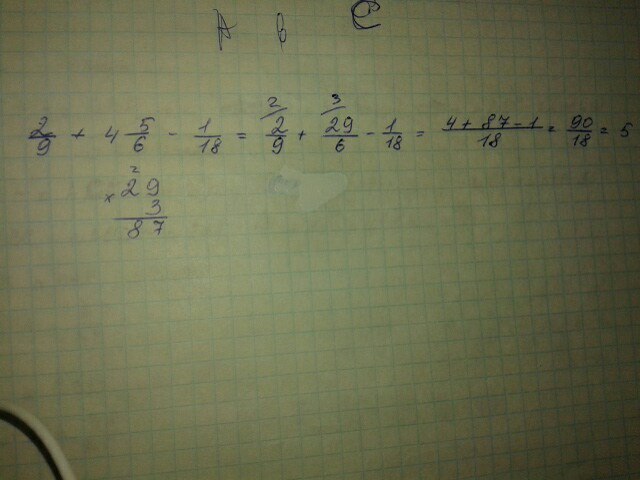 А В С
2/9 + 4 5/6 - 1/18 = 2/9 (2 + 29/6 (3 - 1/18 = 4 + 87 - 1/18 = 90/18 = 5
2
× 29
3
87